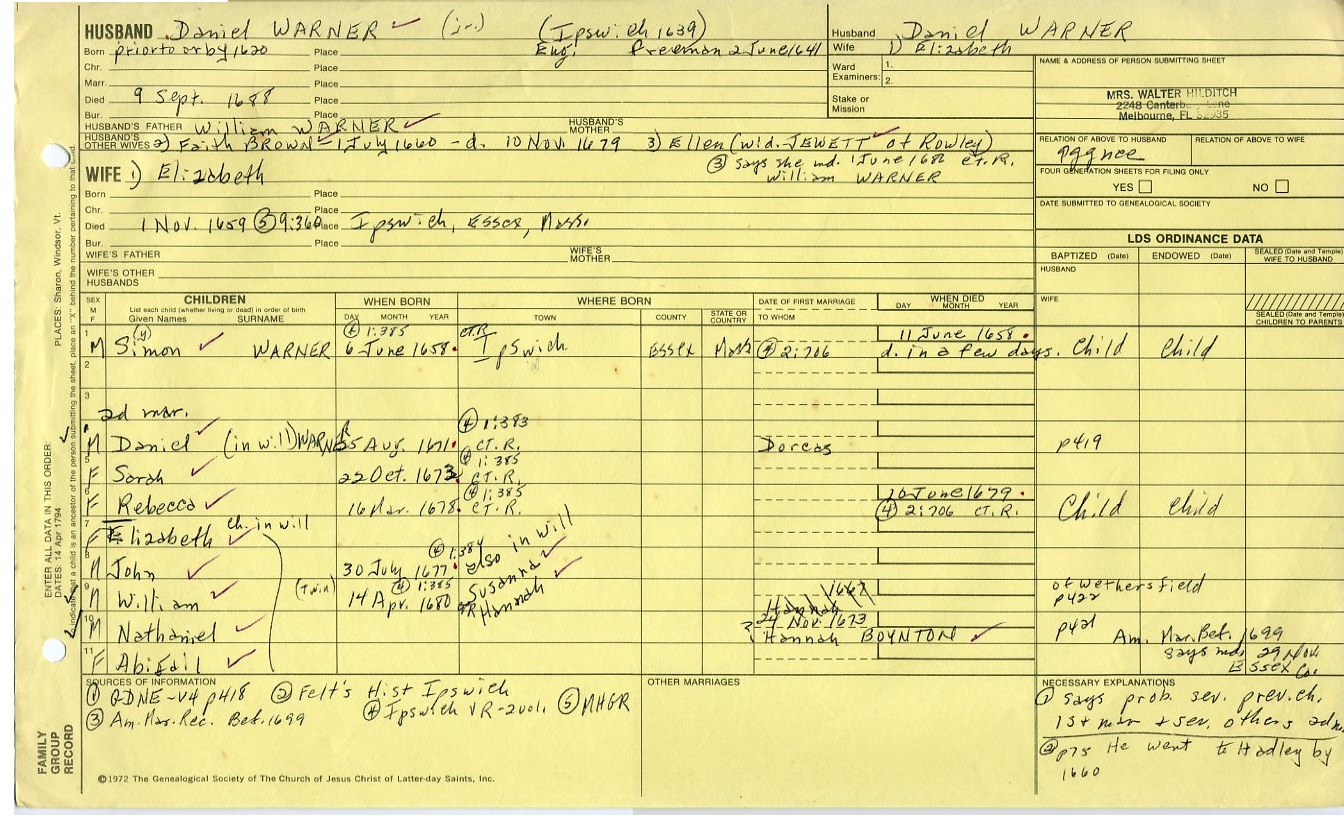 HUSBAND Daniel WARNER ✓ (jr.) (Ipswich 1639)
Born prior to or by 1620 Place Eng. freeman 2 June 1641
Chr. Place
Marr. Place
Died 9 Sept. 1688 Place
Bur. Place
HUSBAND'S FATHER William WARNER ✓ HUSBAND'S MOTHER
HUSBAND'S OTHER WIVES 2) Faith BROWN - 1 July 1660 - d. 10 Nov 1679 3) Ellen (wid. JEWETT of Rowley)
③ says she md. 1 June 1686 CT.R.
William WARNER
WIFE 1) Elizabeth
Born Place
Chr. Place
Died 1 Nov. 1659 ⑤ 9:360 Place Ipswich, Essex, Mass.
Bur. Place
WIFE'S FATHER WIFE'S MOTHER
WIFE'S OTHER HUSBANDS
Husband Daniel WARNER
Wife 1) Elizabeth
Ward Examiners: 1.
2.
Stake or Mission
NAME & ADDRESS OF PERSON SUBMITTING SHEET
MRS. WALTER HILDITCH
2248 Canterbury Lane
Melbourne, FL 32935
RELATION OF ABOVE TO HUSBAND RELATION OF ABOVE TO WIFE
9ggnce
FOUR GENERATION SHEETS FOR FILING ONLY
YES NO
DATE SUBMITTED TO GENEALOGICAL SOCIETY
LDS ORDINANCE DATA
BAPTIZED (Date) ENDOWED (Date) SEALED (Date and Temple) WIFE TO HUSBAND
HUSBAND
WIFE
SEALED (Date and Temple) CHILDREN TO PARENTS
SEX M F
CHILDREN
List each child (whether living or dead) in order of birth
Given Names SURNAME
WHEN BORN
DAY MONTH YEAR
WHERE BORN
TOWN COUNTY STATE OR COUNTRY
DATE OF FIRST MARRIAGE
TO WHOM
WHEN DIED
DAY MONTH YEAR
1 (y) ④ 1:385 CT.R 11 June 1658
M Simon ✓ WARNER 6 June 1658 Ipswich Essex Mass ④ 2:706 d. in a few days. Child Child
2
3
2d mar.
④ 1:383
M Daniel ✓ (in will) WARNER 25 Aug. 1671 CT.R. Dorcas p419
5 ④ 1:385
F Sarah ✓ 22 Oct. 1673 CT.R.
6 ④ 1:385 10 June 1679
F Rebecca ✓ 16 Mar. 1678 CT.R. ④ 2:706 CT.R. Child Child
7 ch. in will
F Elizabeth ✓
8 ④ 1:384 also in will
M John ✓ 30 July 1677 Susanna ✓
9 (twin) ④ 1:385 1667 of Wethersfield
M William ✓ 14 Apr. 1680 CTR Hannah ✓ Hannah p422
10 24 Nov. 1673
M Nathaniel ✓ ? Hannah BOYNTON ✓ p421 Am. Mar. Bef. 1699
says md. 29 Nov.
Essex Co.
11
F Abigail ✓
SOURCES OF INFORMATION
① GDNE-V4 p418 ② Felt's Hist Ipswich
③ Am. Mar. Rec. Bef. 1699 ④ Ipswich VR-2vol. ⑤ NHGR
OTHER MARRIAGES
NECESSARY EXPLANATIONS
① says prob. sev. prev. ch.
1st mar + sev. others 2dm.
② p75 He went to Hadley by
1660
©1972 The Genealogical Society of The Church of Jesus Christ of Latter-day Saints, Inc.
FAMILY GROUP RECORD
ENTER ALL DATA IN THIS ORDER:
DATES: 14 Apr 1794
PLACES: Sharon, Windsor, Vt.